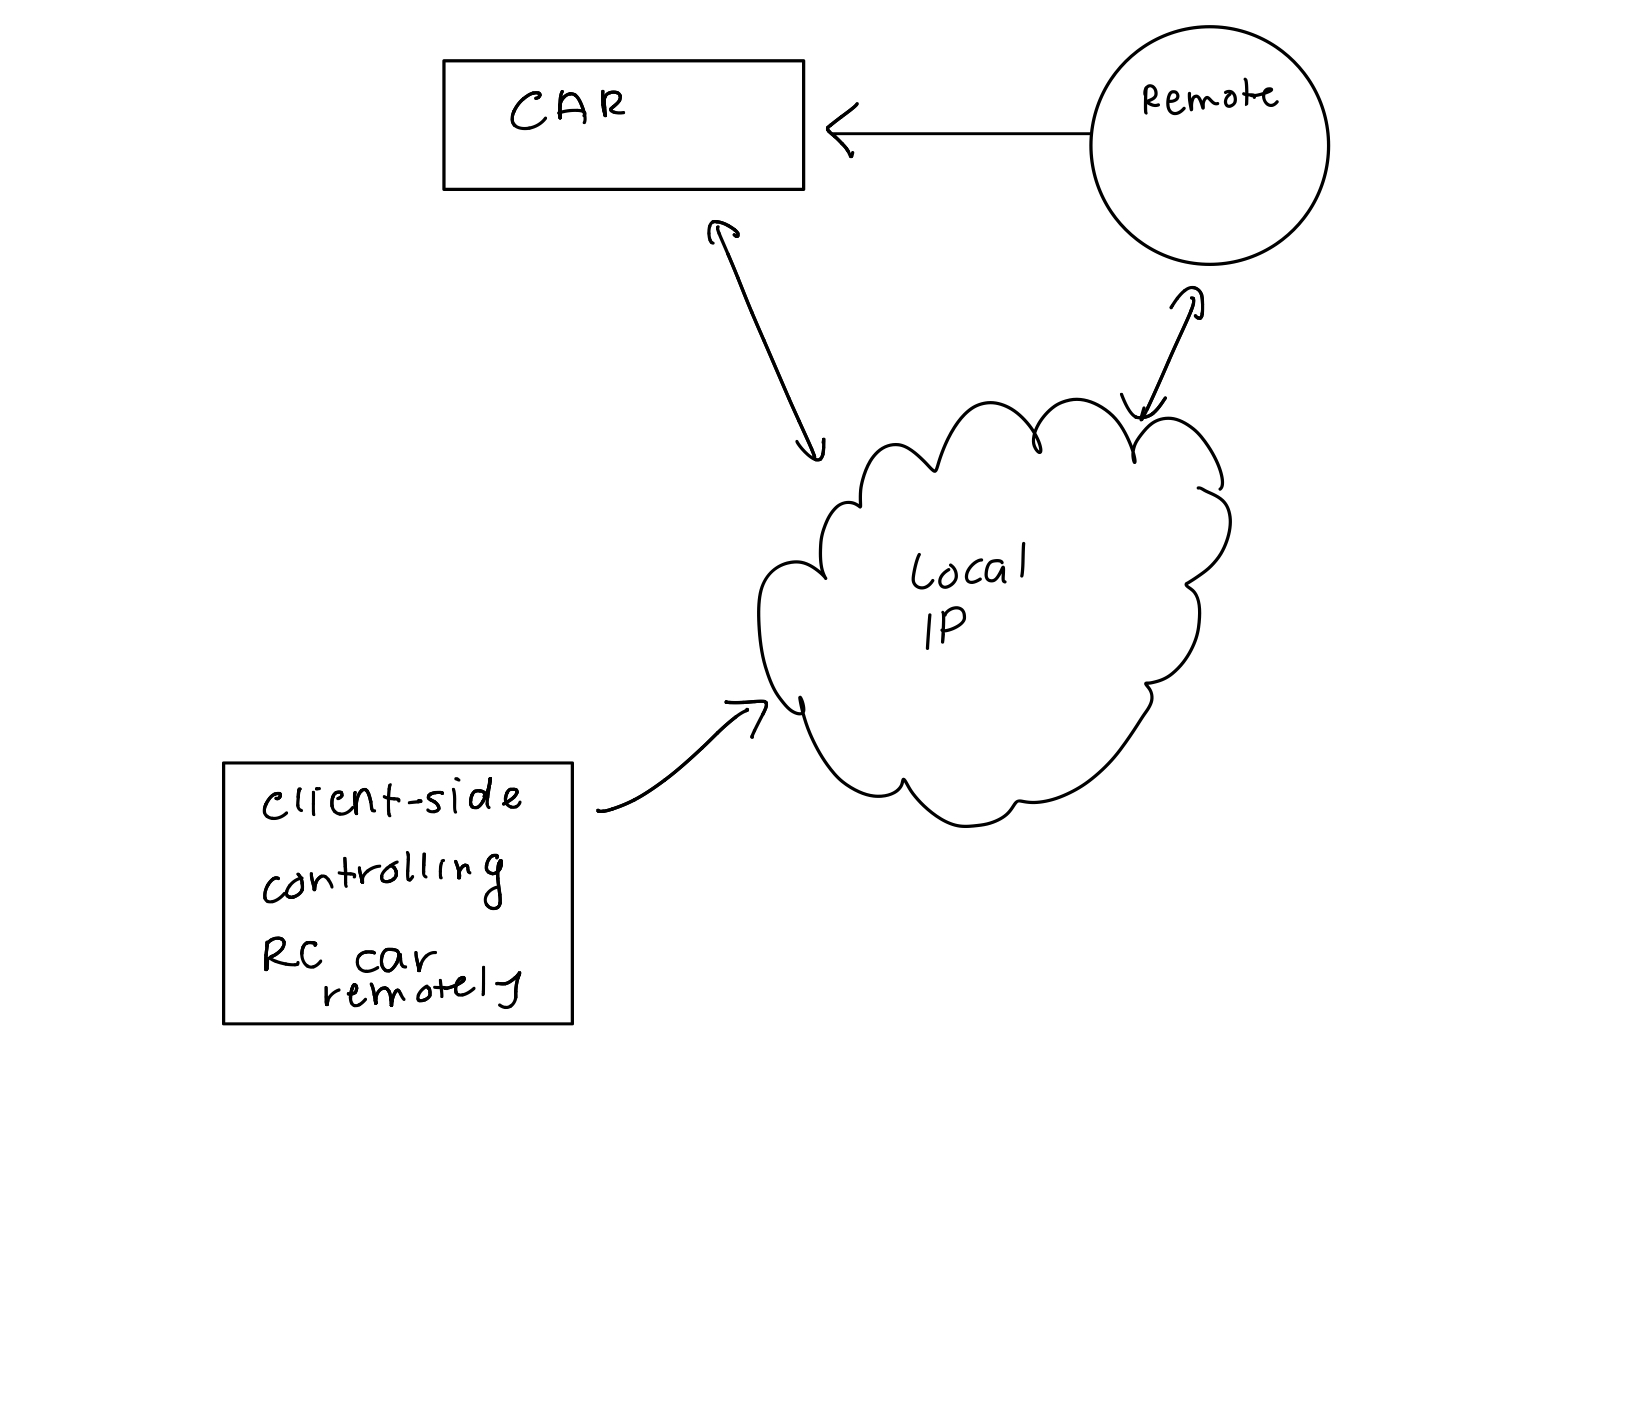 CAR
Remote
Local
IP
client-side
controlling
RC car
remotely